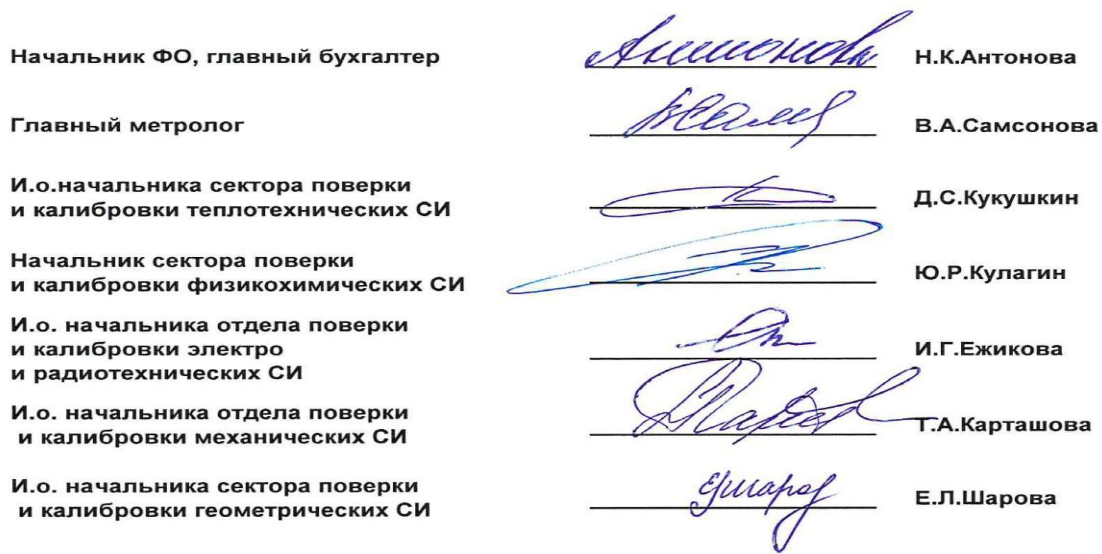 Начальник ФО, главный бухгалтер Антонова Н.К.Антонова
Главный метролог В.А.Самсонова
И.о.начальника сектора поверки
и калибровки теплотехнических СИ Д.С.Кукушкин
Начальник сектора поверки
и калибровки физикохимических СИ Ю.Р.Кулагин
И.о. начальника отдела поверки
и калибровки электро И.Г.Ежикова
и радиотехнических СИ
И.о. начальника отдела поверки
и калибровки механических СИ Т.А.Карташова
И.о. начальника сектора поверки
и калибровки геометрических СИ Е.Л.Шарова